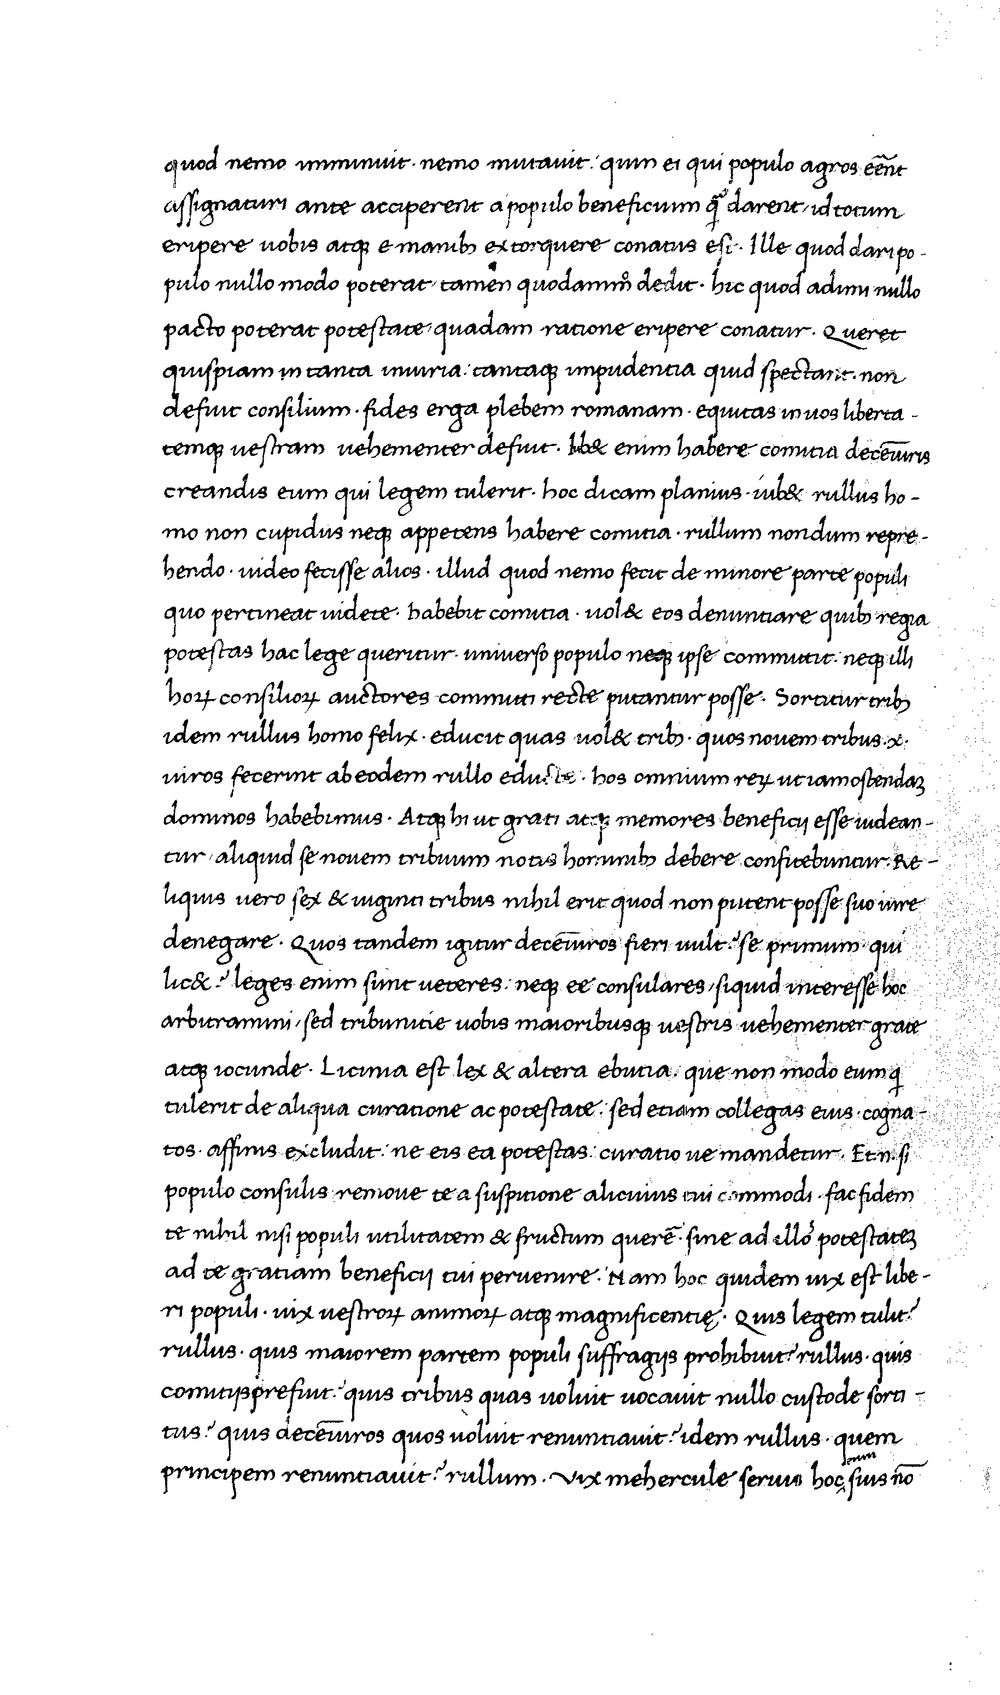 quod nemo imminuit · nemo mutauit : quin ei qui populo agros eēnt
assignaturi ante acciperent a populo beneficium q̃ darent / id totum
eripere uobis atq; e manib; extorquere conatus est · Ille quod dari po-
pulo nullo modo poterat / tamen quodammͦ dedit · hic quod adimi nullo
pacto poterat potestate / quadam ratione eripere conatur · Queret
quispiam in tanta iniuria : tantaq; impudentia quid spectarit · non
defuit consilium · fides erga plebem romanam · equitas in uos liberta-
temq; uestram uehementer defuit · Iub& enim habere comitia decēuiris
creandis eum qui legem tulerit · hoc dicam planius · iub& rullus ho-
mo non cupidus neq; appetens habere comitia · rullum nondum repre-
hendo · uideo fecisse alios · illud quod nemo fecit de minore parte populi
quo pertineat uidete · habebit comitia · uol& eos denuntiare quib; regia
potestas hac lege queritur · uniuerso populo neq; ipse committit · neq; illi
hoꝝ consilioꝝ auctores committi recte putantur posse · Sortitur trib;
idem rullus homo felix · educit quas uol& trib; · quos nouem tribus ·x·
uiros fecerint ab eodem rullo educte · hos omnium reꝝ ut iam ostendaꝫ
dominos habebimus · Atq; hi ut grati atq; memores beneficij esse uidean-
tur / aliquid se nouem tribuum notis hominib; debere confitebuntur · Re-
liquis uero sex & uiginti tribus nihil erit quod non putent posse suo iure
denegare · Quos tandem igitur decēuiros fieri uult ? se primum · qui
lic& ? leges enim sunt ueteres : neq; eē consulares / siquid interesse hoc
arbitramini / sed tribunitie uobis maioribusq; uestris uehementer grate
atq; iocunde · Licinia est lex & altera ebutia · que non modo eum q̃
tulerit de aliqua curatione ac potestate : sed etiam collegas eius · cogna-
tos · affinis excludit : ne eis ea potestas : curatio ue mandetur · Et n · si
populo consulis remoue te a suspitione alicuius tui commodi · fac fidem
te nihil nisi populi utilitatem & fructum querē · sine ad illoˢ potestateꝫ
ad te gratiam beneficij tui peruenire · Nam hoc quidem uix est libe-
ri populi · uix uestroꝝ animoꝝ atq; magnificentię · Quis legem tulit ?
rullus · quis maiorem partem populi suffragijs prohibuit ? rullus · quis
comitijs prefuit ? quis tribus quas uoluit uocauit nullo custode sorti-
tus ? quis decēuiros quos uoluit renuntiauit ? idem rullus · quem
principem renuntiauit ? rullum · Vix mehercule seruis hoc suis nō